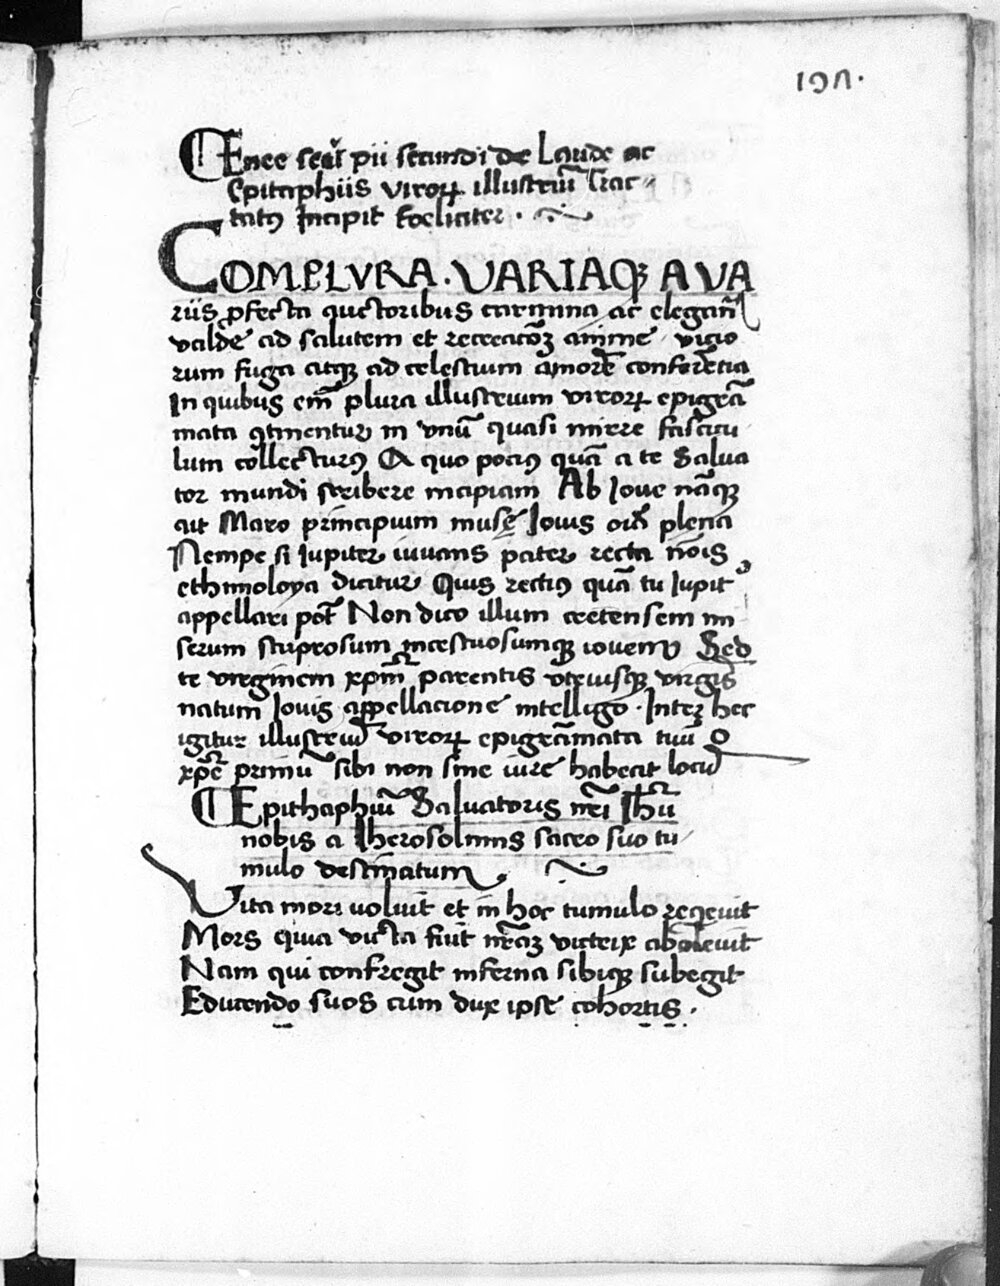 197.
Enee secūdi pii secundi de Laude ac
Epitaphiis viroꝝ illustriū Trac-
tatꝰ Incipit foeliciter.
COMPLVRA. VARIAQꝫ A VA
riis ꝓfecta auctoribus carmina ac elegan̄
valde ad salutem et recreacōꝫ anime vicio
rum fuga atqꝫ ad celestium amorē conferētia
In quibus em̄ plura illustrium viroꝝ epigrā
mata ꝯtinentur in vnū quasi mirre fascicu
lum collecturꝰ A quo pociꝰ quā a te Salua
tor mundi scribere incipiam Ab Ioue nāqꝫ
ait Maro principium muse Iouis oīa plena
Nempe si Iupiter iuuans pater recta nōis
ethimoloya dicitur Quis rectiꝰ quā tu Iupit
appellari pōt Non dico illum cretensem mi
serum stuprosum incestuosumqꝫ iouem Sed
te vreginem xp̄m parentis vtriusqꝫ virgīs
natum Iouis appellacione intelligo. Inter hec
igitur illustriū viroꝝ epigrāmata tuū o
xp̄e primū sibi non sine iure habeat locū
Epithaphiū Saluatoris nr̄i Ihū
nobis a Iherosolimis sacro suo tu
mulo destinatum
Vita mori uoluit et in hoc tumulo reqeuit
Mors quia victa fuit nr̄aꝫ victrix aboleuit
Nam qui confregit inferna sibiqꝫ subegit
Educendo suos cum dux ipse cohortis.